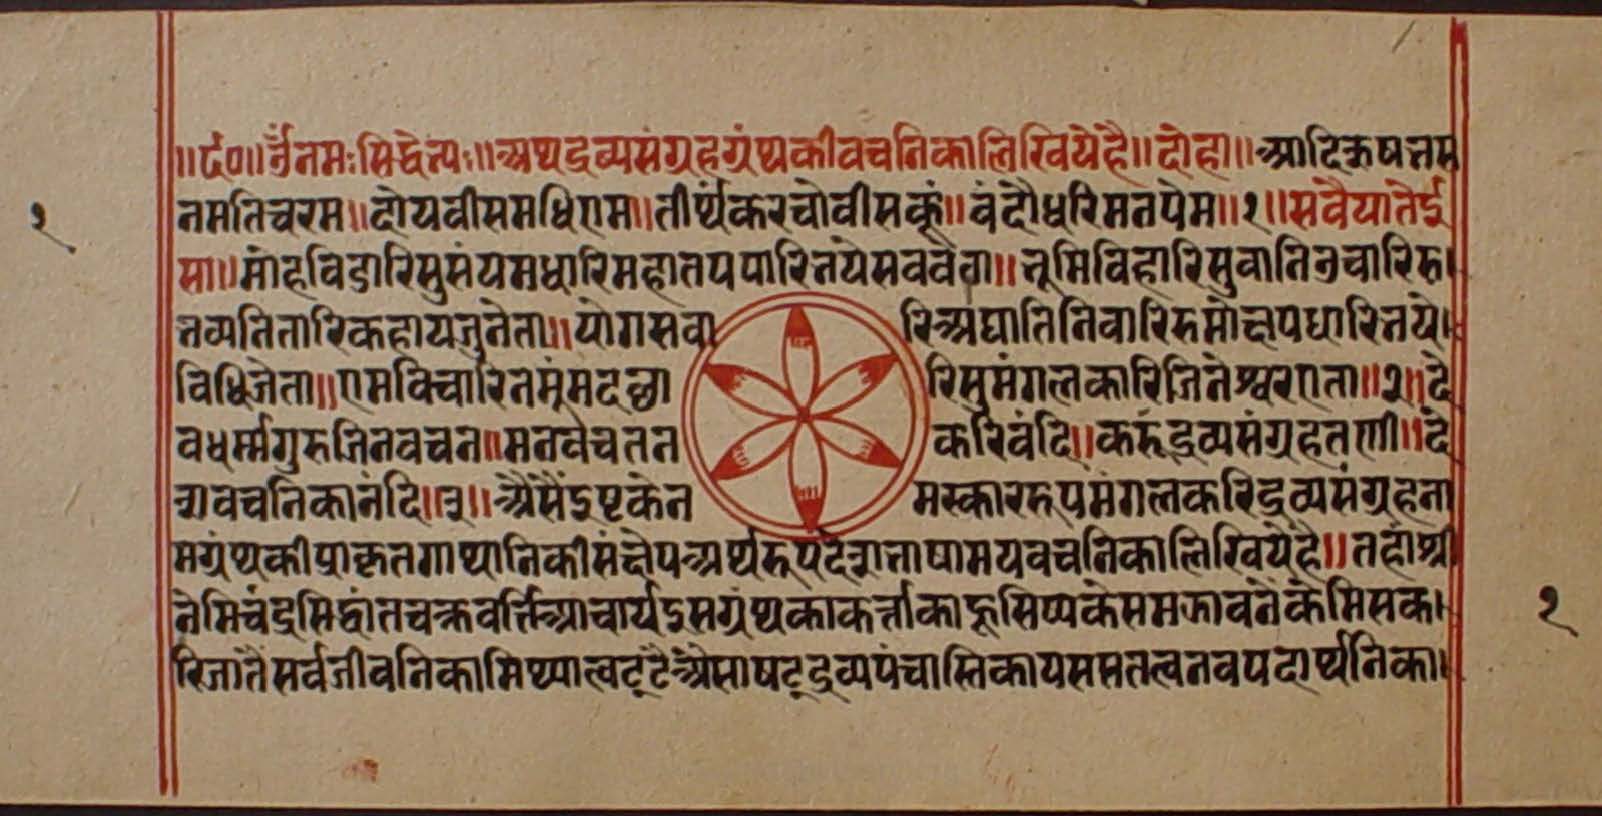 ॥८०॥ ॐ नमः सिद्धेभ्यः॥ अथ द्रव्यसंग्रह ग्रंथ की वचनिका लिखिये है॥ दोहा॥ आदि ऋषभ सन
मति चरम॥ दोय वीस मधि एम॥ तीर्थंकर चोवीसकूं॥ वंदौ धरि मन पेम॥१॥ सवैया तेई
सा॥ मोह विडारि सु संयम धारि महातप पारि भये सववेवा॥ भूमि विहारि सुवानि उचारि रु
भव्यनि तारि कहाय जु नेता॥ योग सवारि अघाति निवारि रु मोक्ष पधारि भये
विधि जेता॥ एम विचारि नमूं मद छारि सु मंगलकारि जिनेश्वर एता॥२॥ दे
व धर्म्म गुरु जिनवचन॥ मन वच तन करि वंदि॥ करूं द्रव्यसंग्रह तणी॥ दे
श वचनिका नंदि॥३॥ अैसैं इष्टके नमस्काररूप मंगल करि द्रव्यसंग्रह ना
म ग्रंथकी प्राकृत गाथानिकी संक्षेप अर्थरूप देशभाषामय वचनिका लिखिये है॥ तहां श्री
नेमिचंद्र सिद्धांतचक्रवर्त्ति आचार्य इस ग्रंथका कर्त्ता काहू सिष्यके समझावनेंके मिसक
रि जातैं सर्व जीवनिका मिथ्यात्व टूटै अैसा षट्द्रव्य पंचास्तिकाय सप्ततत्व नव पदार्थनिका
१
१